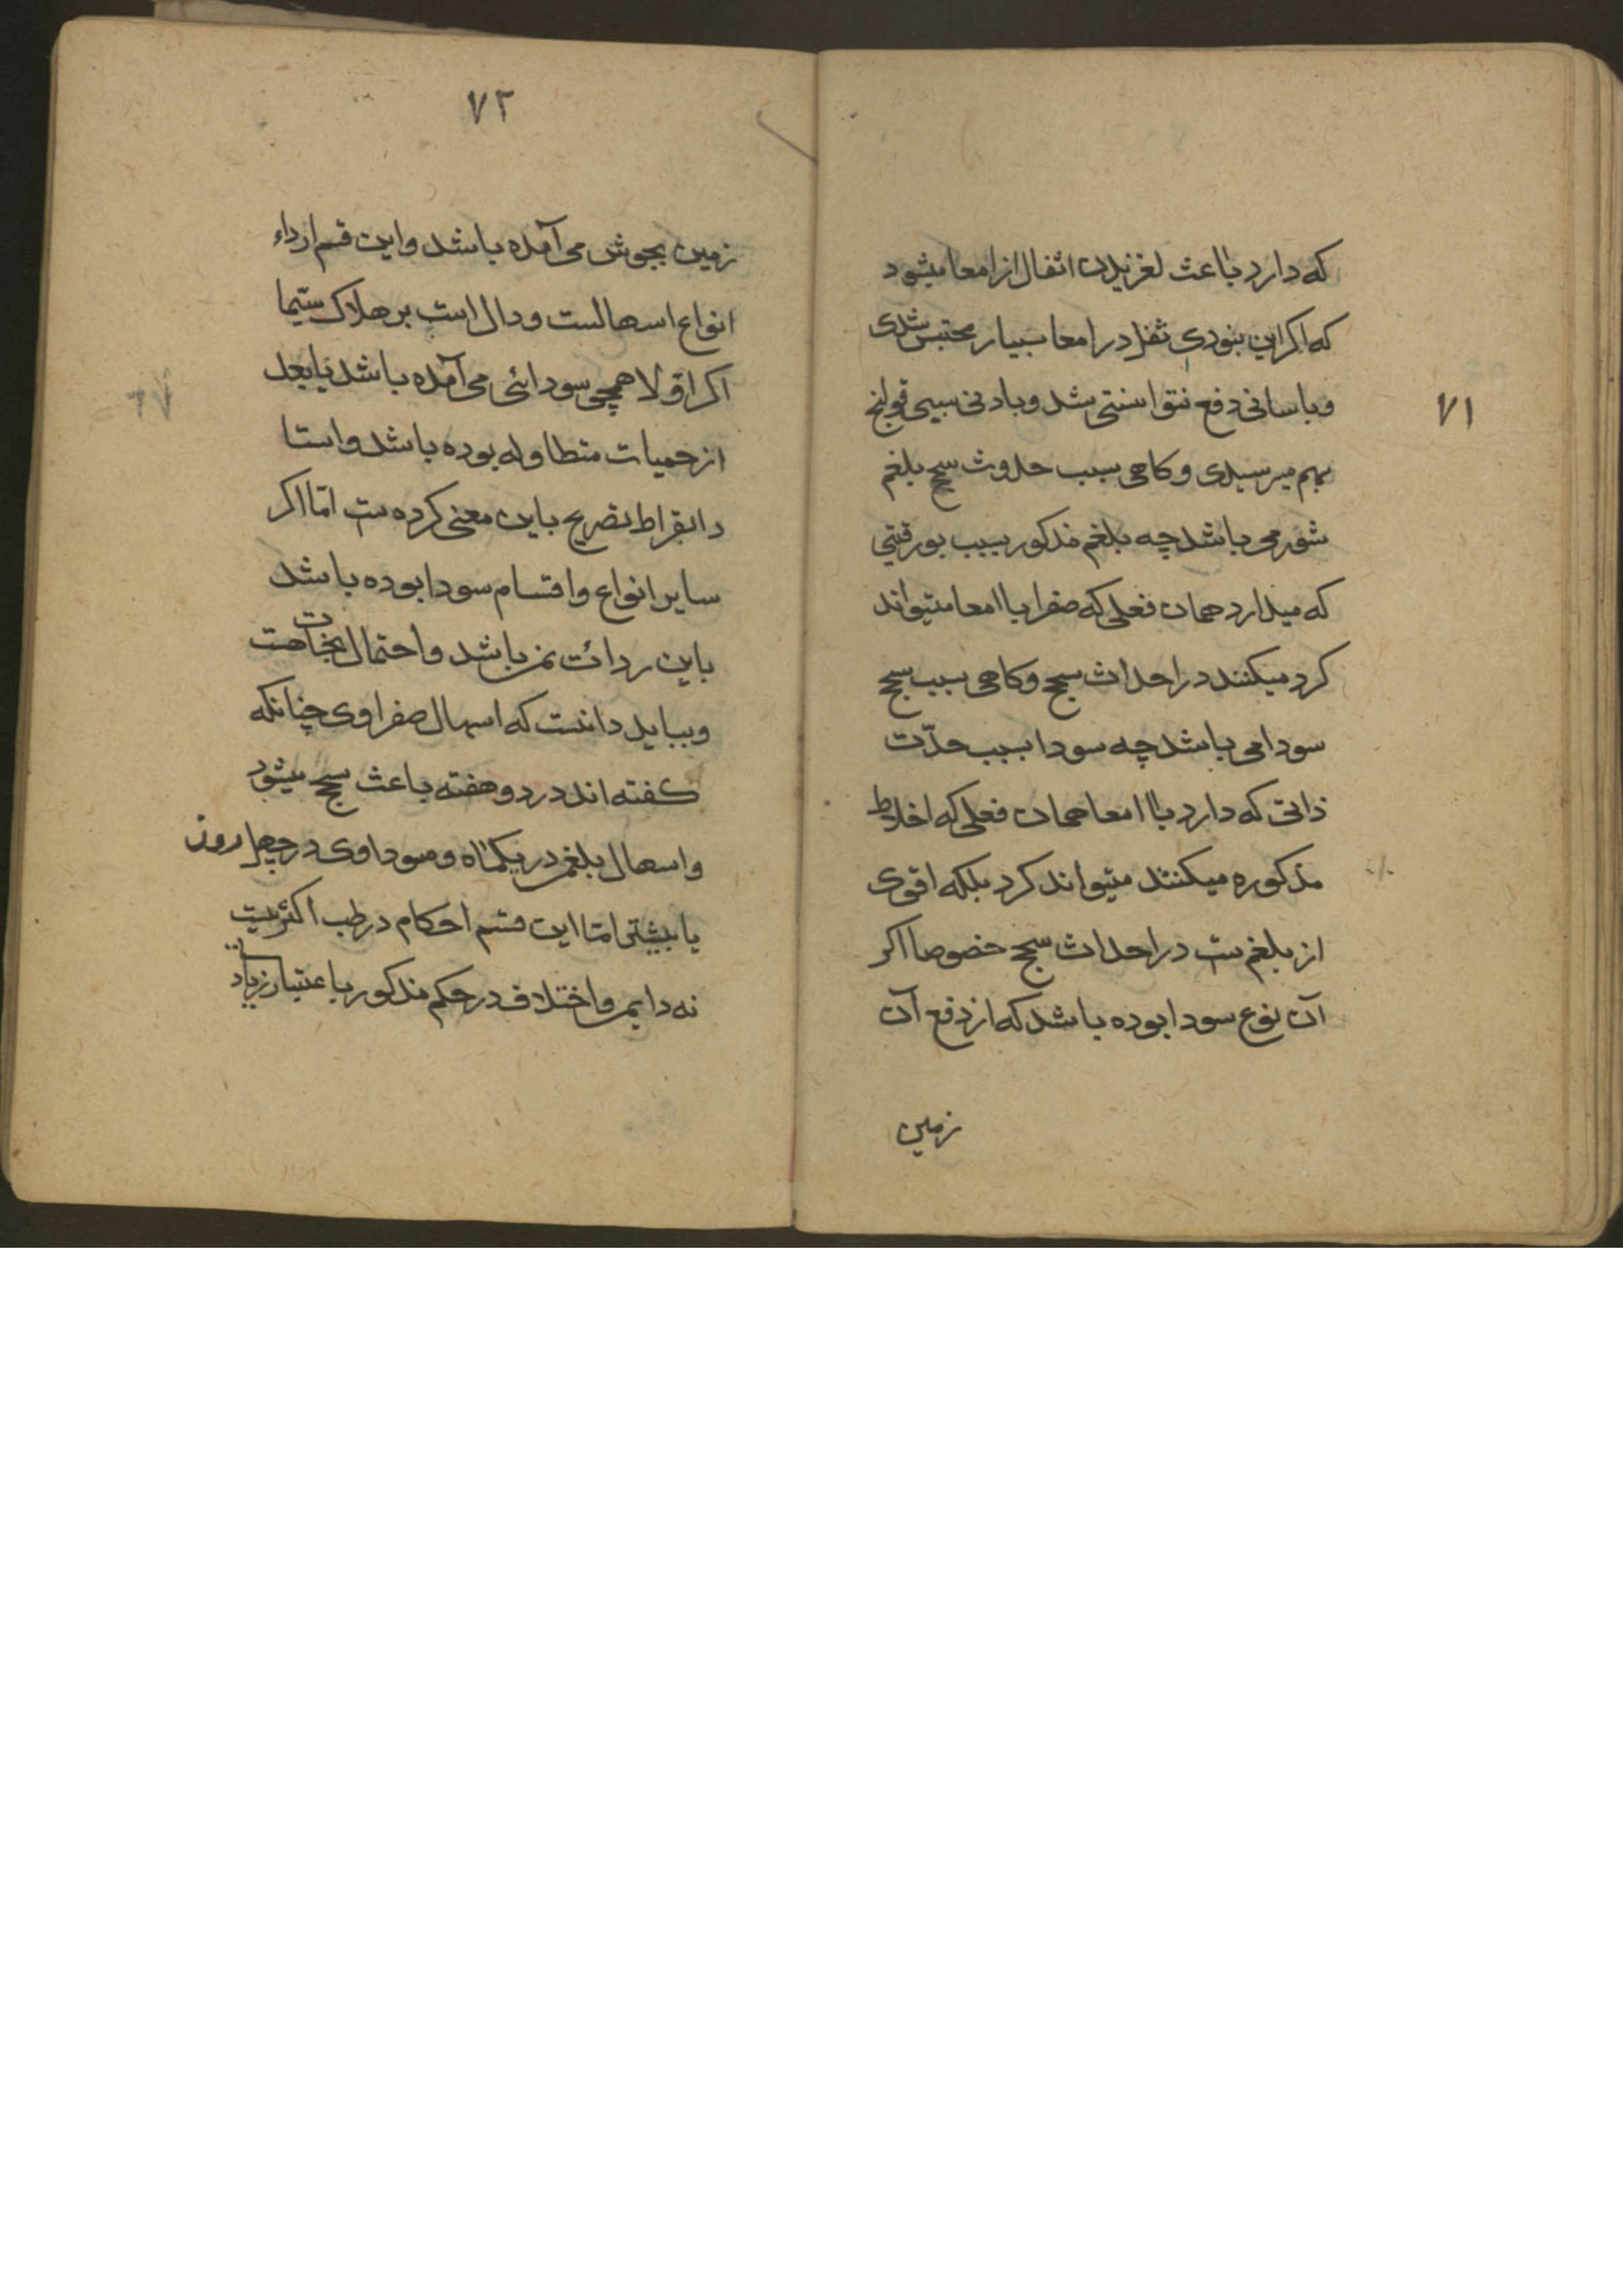 ۷۱
که دارد باعث لغزیدن اثفال از امعا میشود
که اکر این بنودی ثفل در امعا بسیار محتبس شدی
وباسانی دفع نتوانستی شد وبادنی سببی قولنج
بهم میرسیدی وکاهی سبب حدوث سحج بلغم
شور می باشد چه بلغم مذکور بسبب بورقیتی
که میدارد همان فعلی که صفرا باامعا میتواند
کرد میکنند در احداث سحج وکاهی سبب سحج
سودا می باشد چه سودا بسبب حدّت
ذاتی که دارد باامعا همان فعلی که اخلاط
مذکوره میکنند میتواند کرد بلکه اقوی
از بلغم ست در احداث سحج خصوصا اکر
آن نوع سودا بوده باشد که از دفع آن
زمین
۷۲
زمین بجوش می آمده باشد واین قسم ارداء
انواع اسهالست ودال است بر هلاک سیّما
اکر اوّلا همچی سودائی می آمده باشد یا بعد
از حمیات متطاوله بوده باشد واستا
د ابقراط تصریح باین معنی کرده ست امّا اکر
سایر انواع واقسام سودا بوده باشد
باین ردائت نمی باشد واحتمال نجات هست
وبباید دانست که اسهال صفراوی چنانکه
کفته اند در دو هفته باعث سحج میشود
واسهال بلغم در یکماه وسوداوی در چهل روز
یا بیشتر امّا این قسم احکام در طب اکثریست
نه دایم واختلاف در حکم مذکور باعتبار زیاد